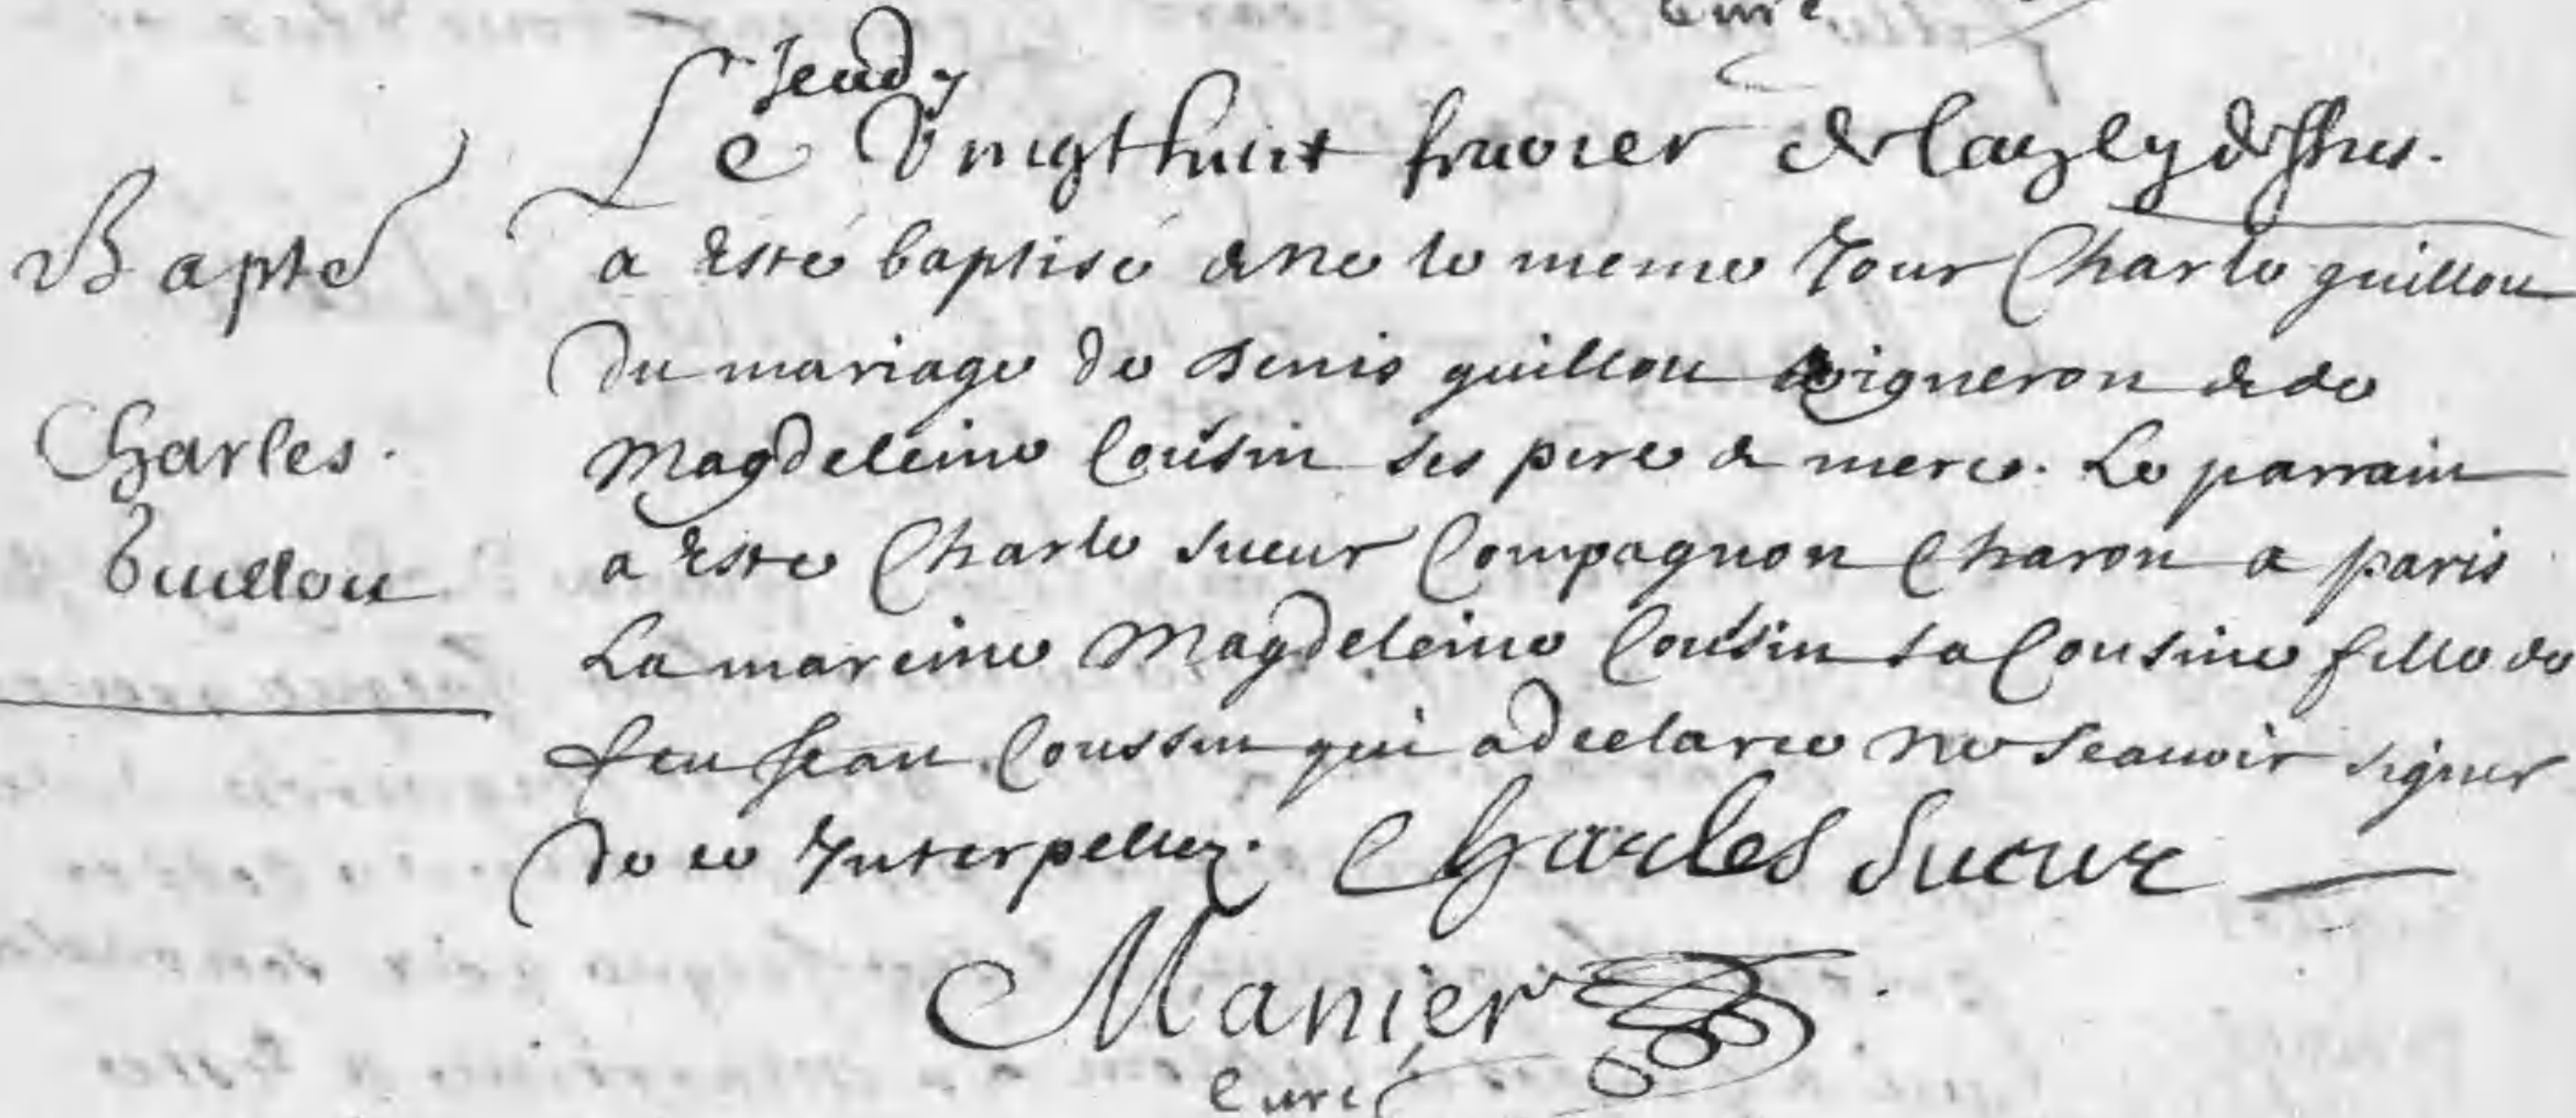 Curé
Jeudy
Le Vingt huict feuvrier de lan &ly dessus.
Bapte
a Esté baptisé & né le meme Jour Charle guillou
du mariage de Denis guillou vigneron & de
Charles.
Magdeleine Cousin ses pere & mere. Le parrain
Guillou
a Este Charle sueur Compagnon Charon a paris
La mareine Magdeleine Cousin sa Cousine fille de
feu Jean Coussin qui a declaree ne scauoir signer
de ce Interpellez. Charles Sueur
Manier
Curé